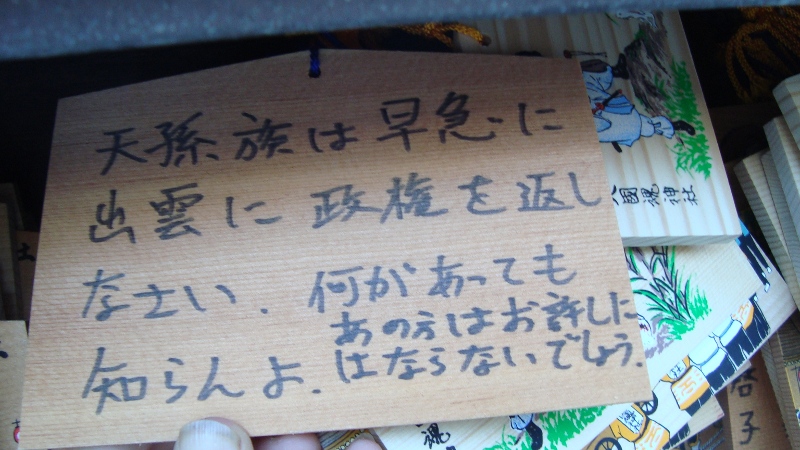 天孫族は早急に
出雲に政権を返し
なさい.何があっても
知らんよ.
あの方はお許しに
はならないでしょう.
国魂神社
魂
啓子